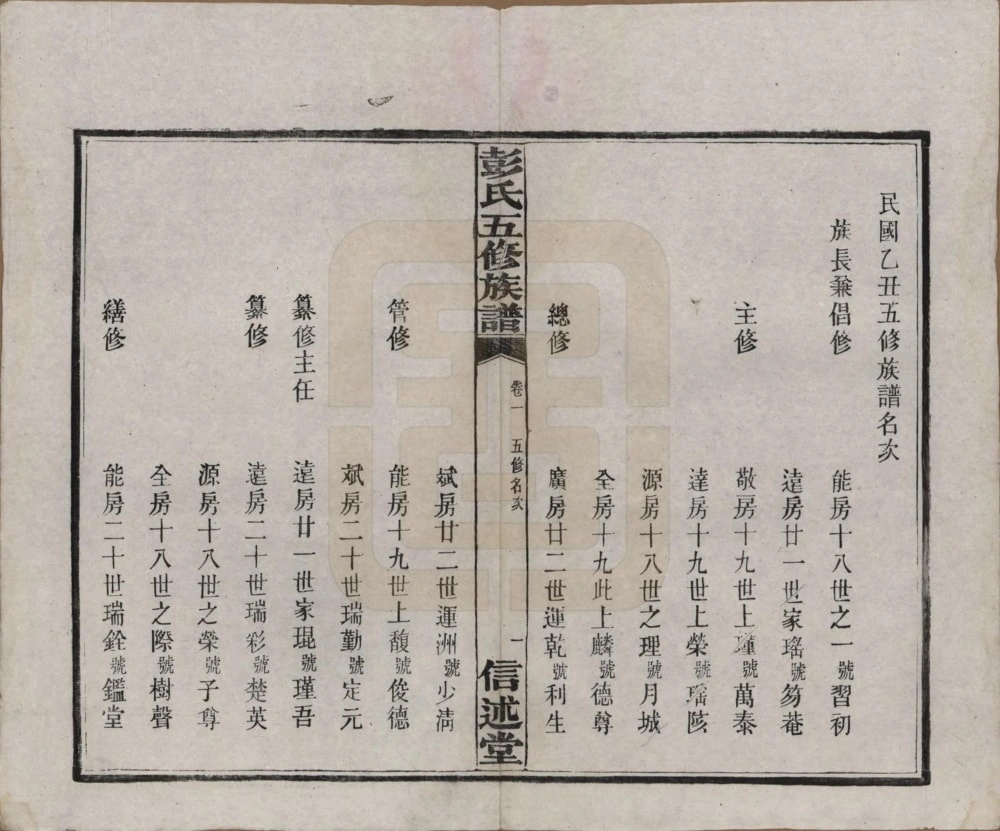 民國乙丑五修族譜名次
族長兼倡修
能房十八世之一號習初
遠房廿一世家瑤號芴菴
主修
敬房十九世上瑾號萬泰
達房十九世上榮號瑤陔
源房十八世之理號月城
全房十九此上麟號德尊
總修
廣房廿二世運乾號利生
彭氏五修族譜
卷一
五修名次
一
信述堂
斌房廿二世運洲號少清
管修
能房十九世上馥號俊德
斌房二十世瑞勤號定元
纂修主任
遠房廿一世家琨號瑾吾
纂修
遠房二十世瑞彩號楚英
源房十八世之榮號子尊
全房十八世之際號樹聲
繕修
能房二十世瑞銓號鑑堂